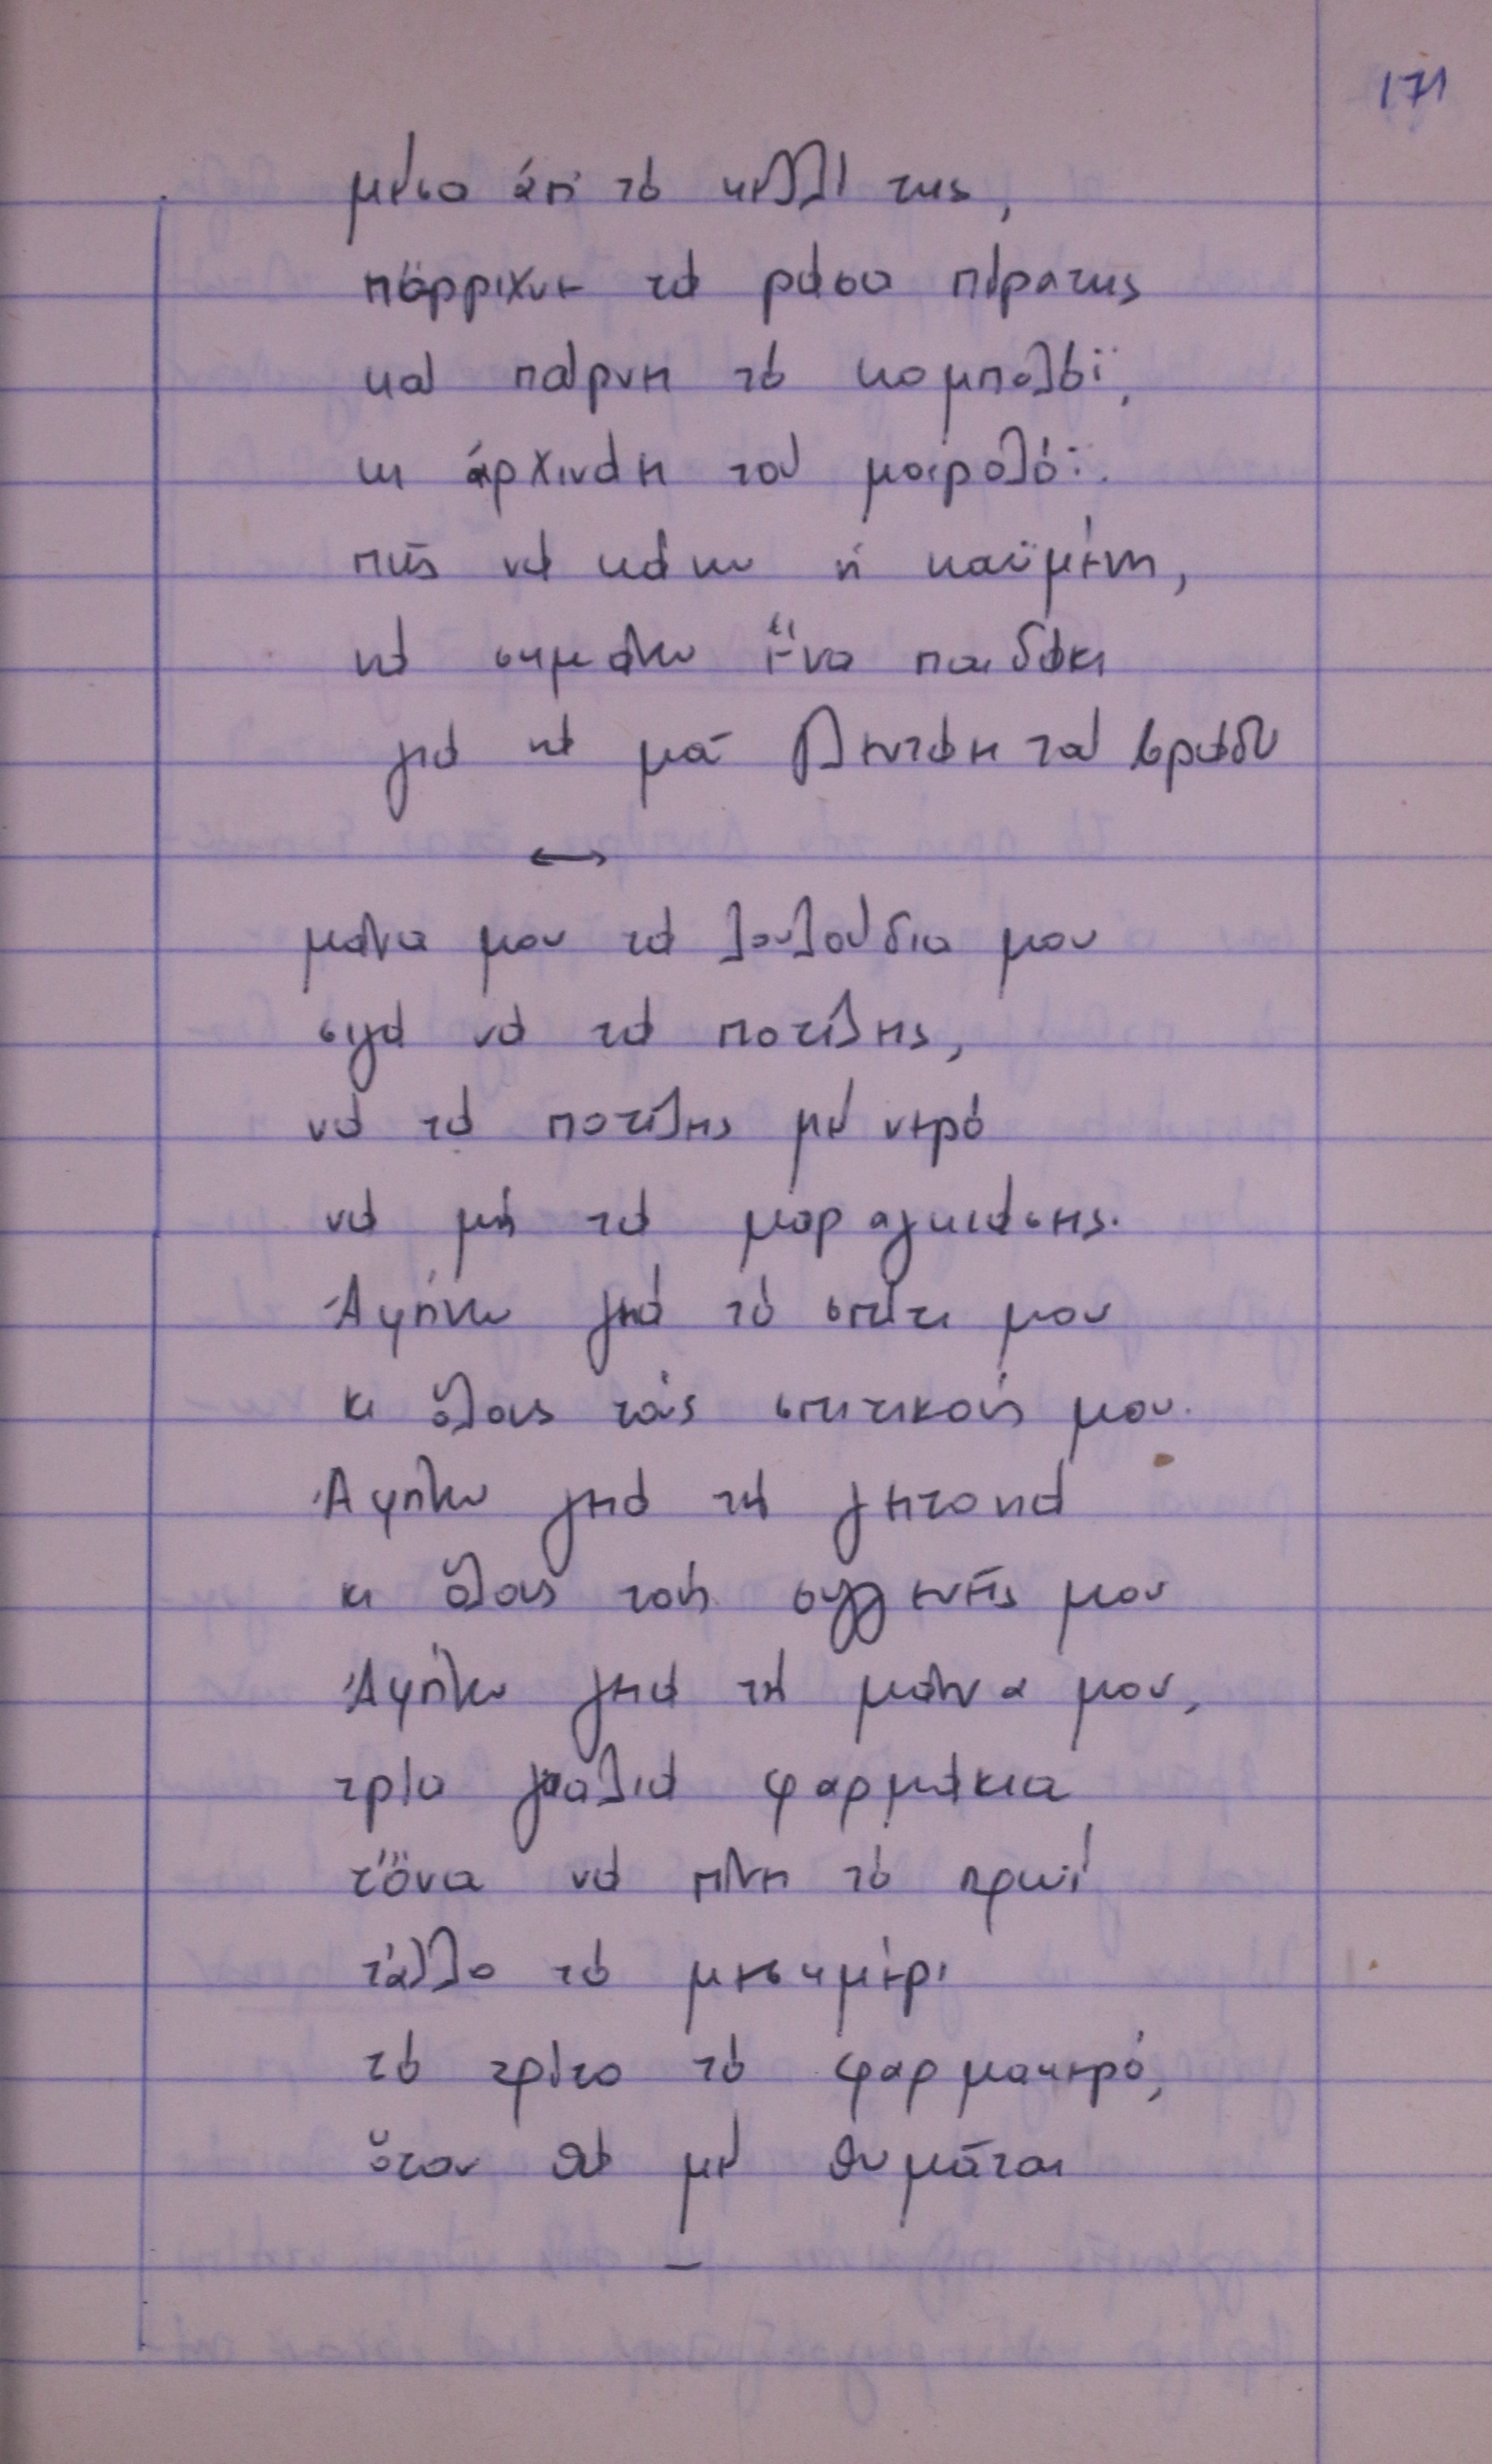 171
μέσα ἀπ' τό κελλί της,
πόρριχνε τά ράσα πέρα της
καί παίρνει τό κομπολόϊ,
κι ἀρχινάει τοῦ μοιρολόϊ.
πῶς νά κάνω ἡ καϋμένη,
νά ἕνα παιδάκι
γιά νά μᾶ τοῦ βράδυ
μάνα μου τά λουλούδια μου
σιγά νά τά ποτίζης,
νά τά ποτίζης μέ νερό
νά μή τά μαραγκιάσεις.
Ἀφήνω γειά τό σπίτι μου
κι ὅλους τούς σπιτικούς μου.
Ἀφήνω γειά τή γειτονιά
κι ὅλους τούς συγγενεῖς μου
Ἀφήνω γειά τή μάνα μου,
τρία γυαλιά φαρμάκια
τὄνα νά πίνει τό πρωΐ
τἄλλο τό μεσημέρι
τό τρίτο τό φαρμακερό,
ὅταν θά μέ θυμᾶται